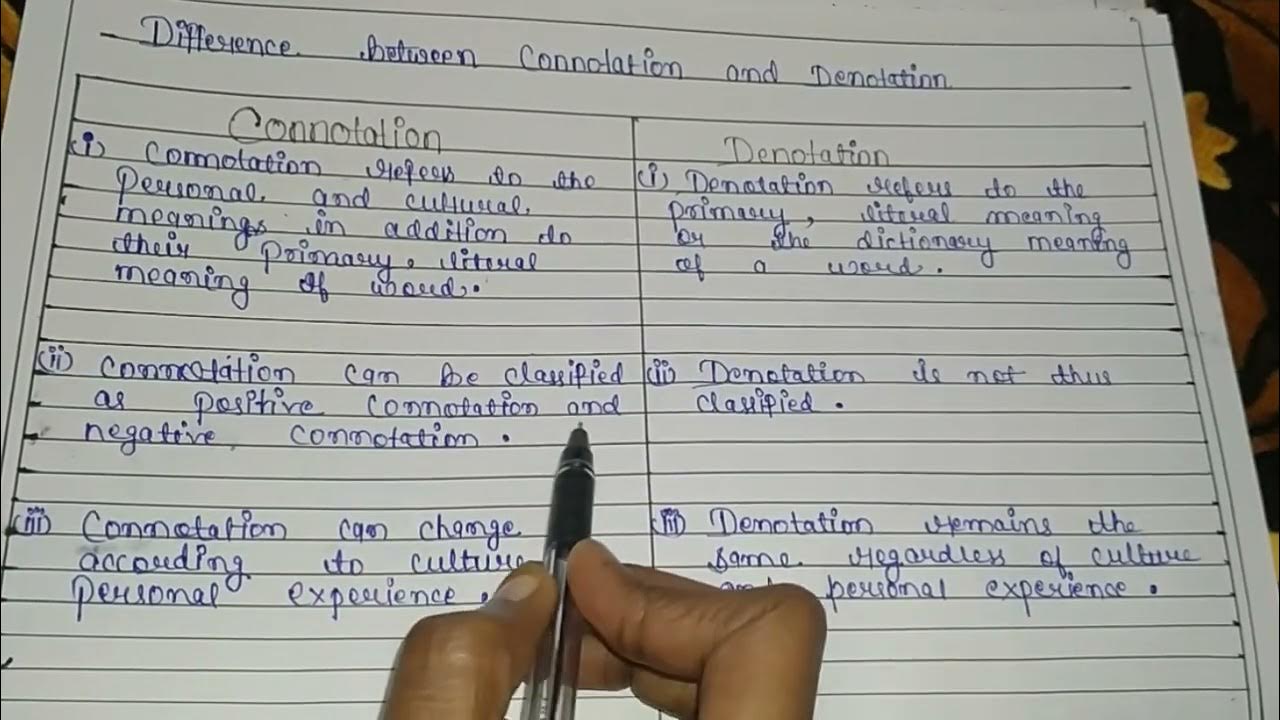 Difference between Connotation and Denotation
Connotation
(i) Connotation refers to the
personal and cultural
meanings in addition to
their primary, literal
meaning of word.
(ii) Connotation can be classified
as positive connotation and
negative connotation.
(iii) Connotation can change
according to culture
personal experience.
Denotation
(i) Denotation refers to the
primary, literal meaning
or the dictionary meaning
of a word.
(ii) Denotation is not thus
classified.
(iii) Denotation remains the
same regardless of culture
personal experience.